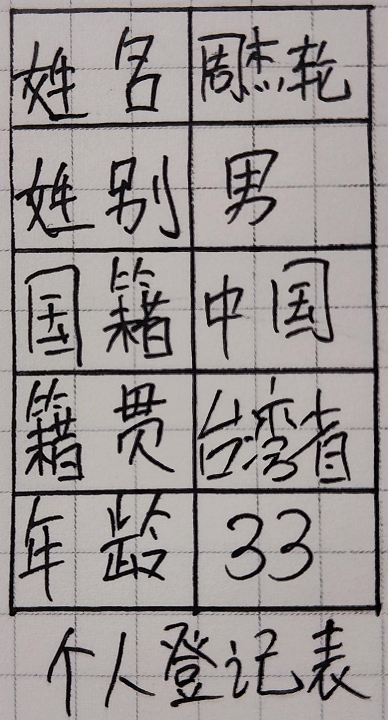 姓名 周杰轮
姓别 男
国籍 中国
籍贯 台湾省
年龄 33
个人登记表